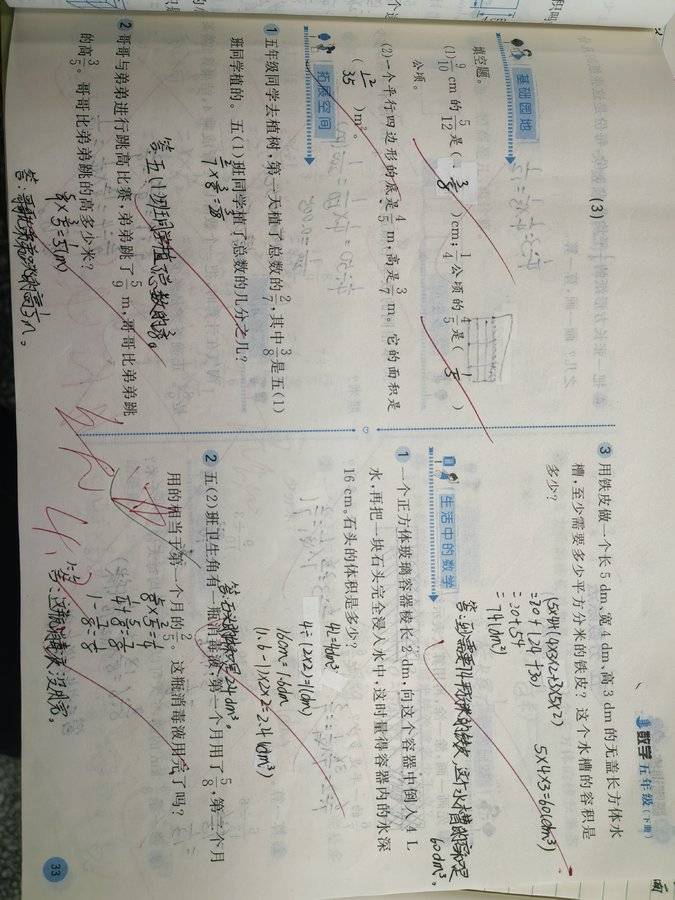 数学 五年级(下册)
(3)
基础园地
填空题。
(1) 9/10 cm 的 5/12 是( 3/8 )cm; 1/4 公顷的 4/5 是( 1/5 )
公顷。
(2)一个平行四边形的底是 4/5 m,高是 3/7 m。它的面积是
( 12/35 )m²。
拓展空间
1 五年级同学去植树,第一天植了总数的 2/7 ,其中 3/8 是五(1)
班同学植的。五(1)班同学植了总数的几分之几?
2 哥哥与弟弟进行跳高比赛,弟弟跳了 5/9 m,哥哥比弟弟跳
的高 3/5 。哥哥比弟弟跳的高多少米?
5/9×3/5=1/3(m)
3 用铁皮做一个长 5 dm、宽 4 dm、高 3 dm 的无盖长方体水
槽,至少需要多少平方分米的铁皮?这个水槽的容积是
多少?
=20+(24+30)
=20+54
=74(dm²)
5×4×3=60(dm³)
60dm³。
生活中的数学
1 一个正方体玻璃容器棱长 2 dm,向这个容器中倒入 4 L
水,再把一块石头完全浸入水中,这时量得容器内的水深
16 cm。石头的体积是多少?
4L=4dm³
4÷(2×2)=1(dm)
16cm=1.6dm
(1.6-1)×2×2=2.4(dm³)
答:石头的体积是2.4dm³。
2 五(2)班卫生角有一瓶消毒液,第一个月用了 5/8 ,第二个月
用的相当于第一个月的 2/5 。这瓶消毒液用完了吗?
5/8×2/5=1/4
1/4+5/8=7/8
1-7/8=1/8
答:这瓶消毒液没用完。
33